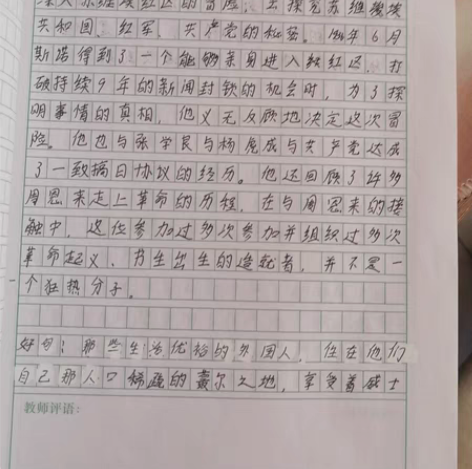 深入苏维埃红区的冒险,去探究苏维埃
共和国、红军、共产党的秘密。1936年6月
斯诺得到了一个能够亲身进入红区、打
破持续9年的新闻封锁的机会时,为了探
明事情的真相,他义无反顾地决定这次冒
险。他也与张学良与杨虎成与共产党达成
了一致搞日协议的经历。他还回顾了许多
周恩来走上革命的历程,在与周恩来的接
触中,这位参加过多次参加并组织过多次
革命起义、书生出生的造就者,并不是一
个狂热分子。
好句:那些生活优裕的外国人,住在他们
自己那人口稀疏的戴尔之地,享受着威士
教师评语: